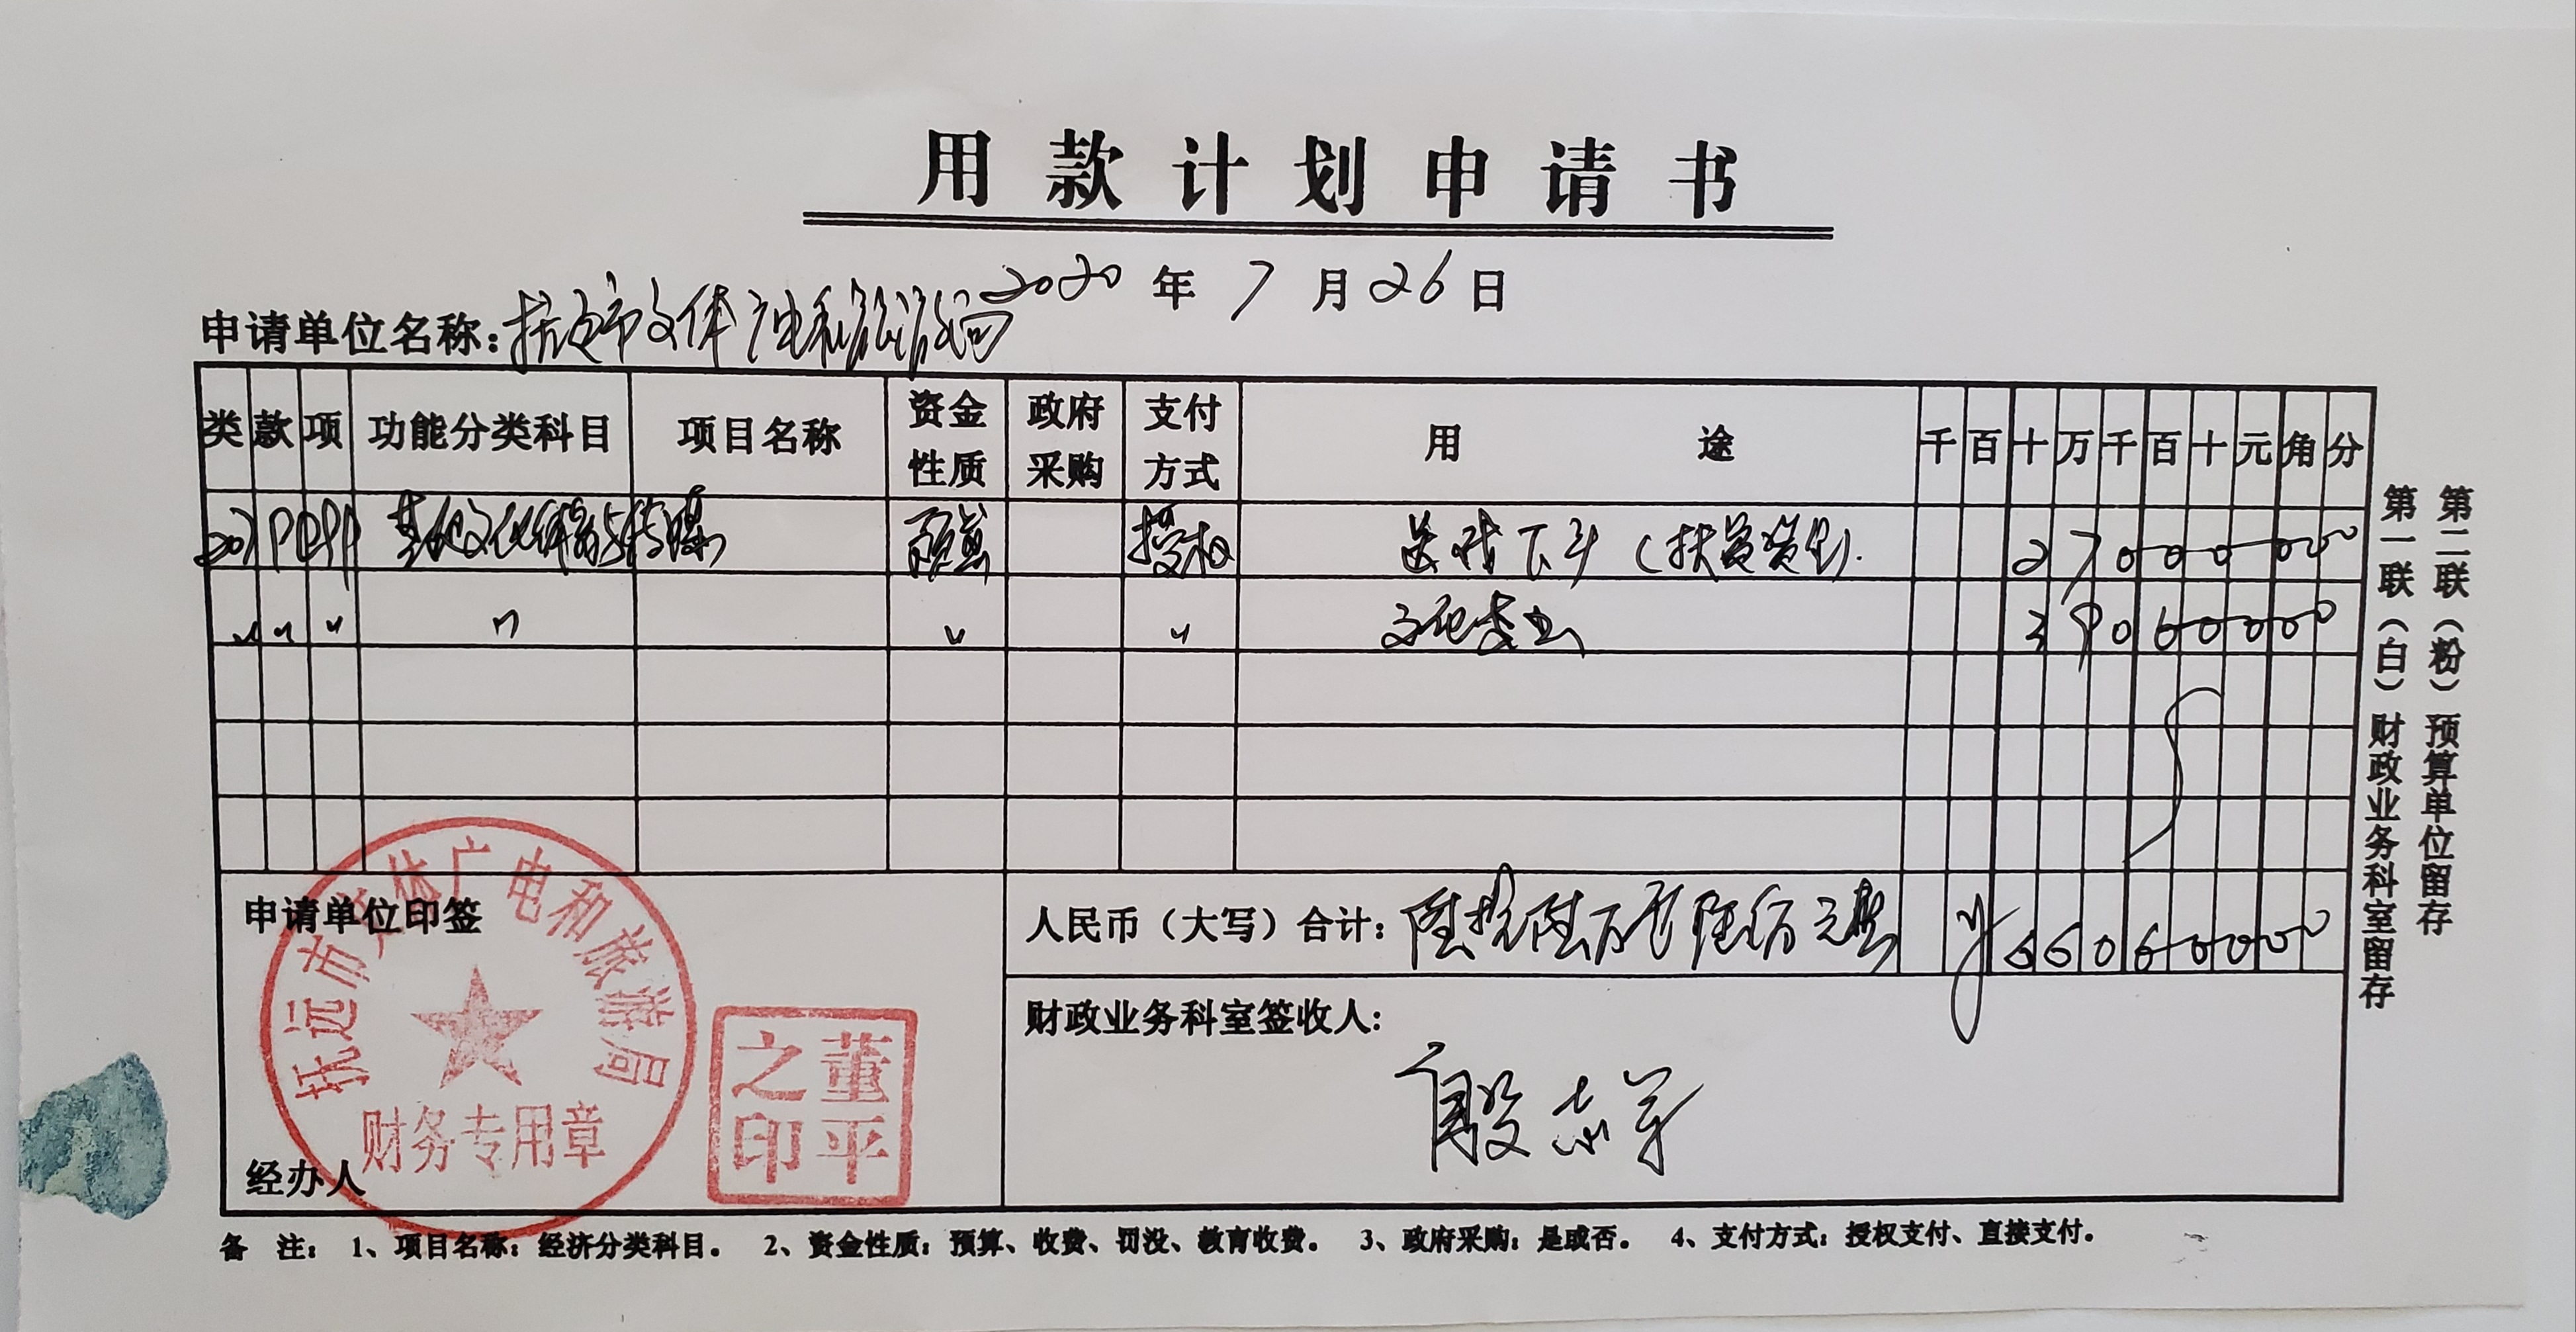 用款计划申请书
2020年7月26日
申请单位名称：抚远市文体广电和旅游局
类 款 项 功能分类科目 项目名称 资金性质 政府采购 支付方式 用途 千 百 十 万 千 百 十 元 角 分
207 99 99 其他文化体育与传媒 预算 授权 送戏下乡（扶贫资金） 2 7 0 0 0 0 0 0
〃 〃 〃 〃 〃 〃 3 9 0 6 0 0 0 0
申请单位印签
人民币（大写）合计：陆拾陆万零陆佰元整 ¥ 6 6 0 6 0 0 0 0
抚远市文体广电和旅游局
财务专用章
董平之印
经办人
财政业务科室签收人：
殷志军
备 注： 1、项目名称：经济分类科目。 2、资金性质：预算、收费、罚没、教育收费。 3、政府采购：是或否。 4、支付方式：授权支付、直接支付。
第一联（白）财政业务科室留存
第二联（粉）预算单位留存